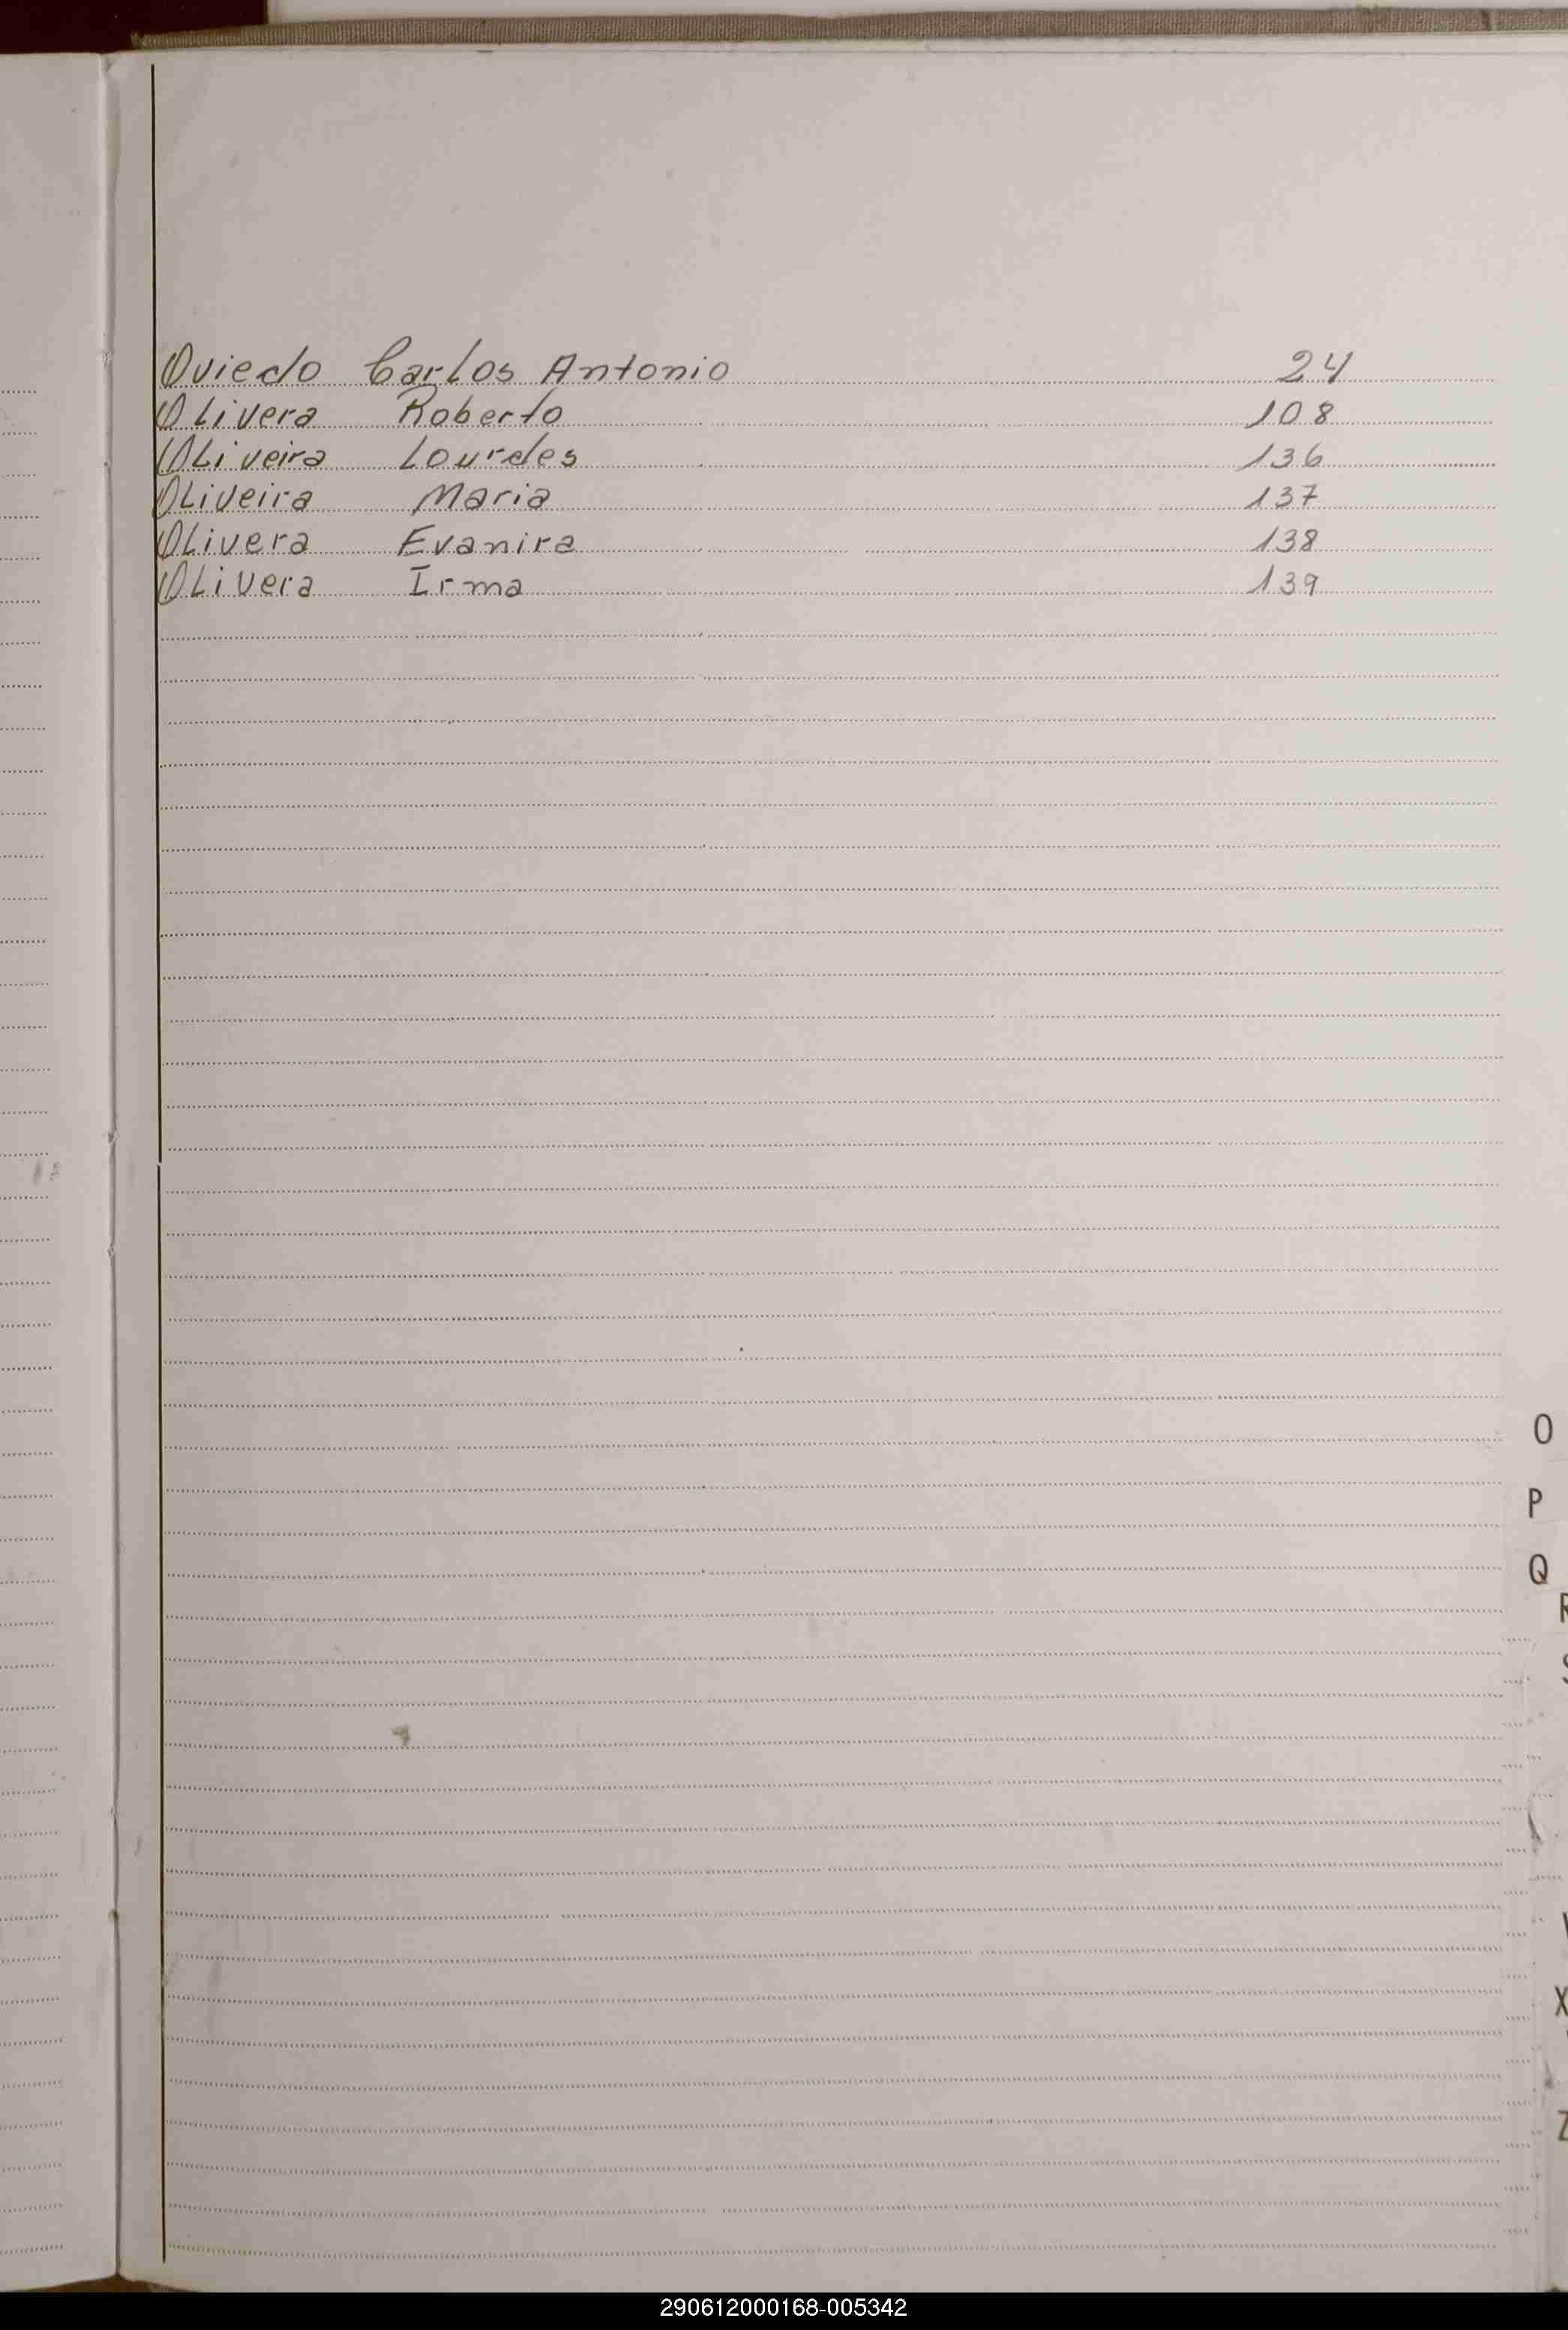 Oviedo Carlos Antonio 24
Olivera Roberto 108
Oliveira Lourdes 136
Oliveira Maria 137
Olivera Evanira 138
Olivera Irma 139
O
P
Q
R
S
X
Z
290612000168-005342